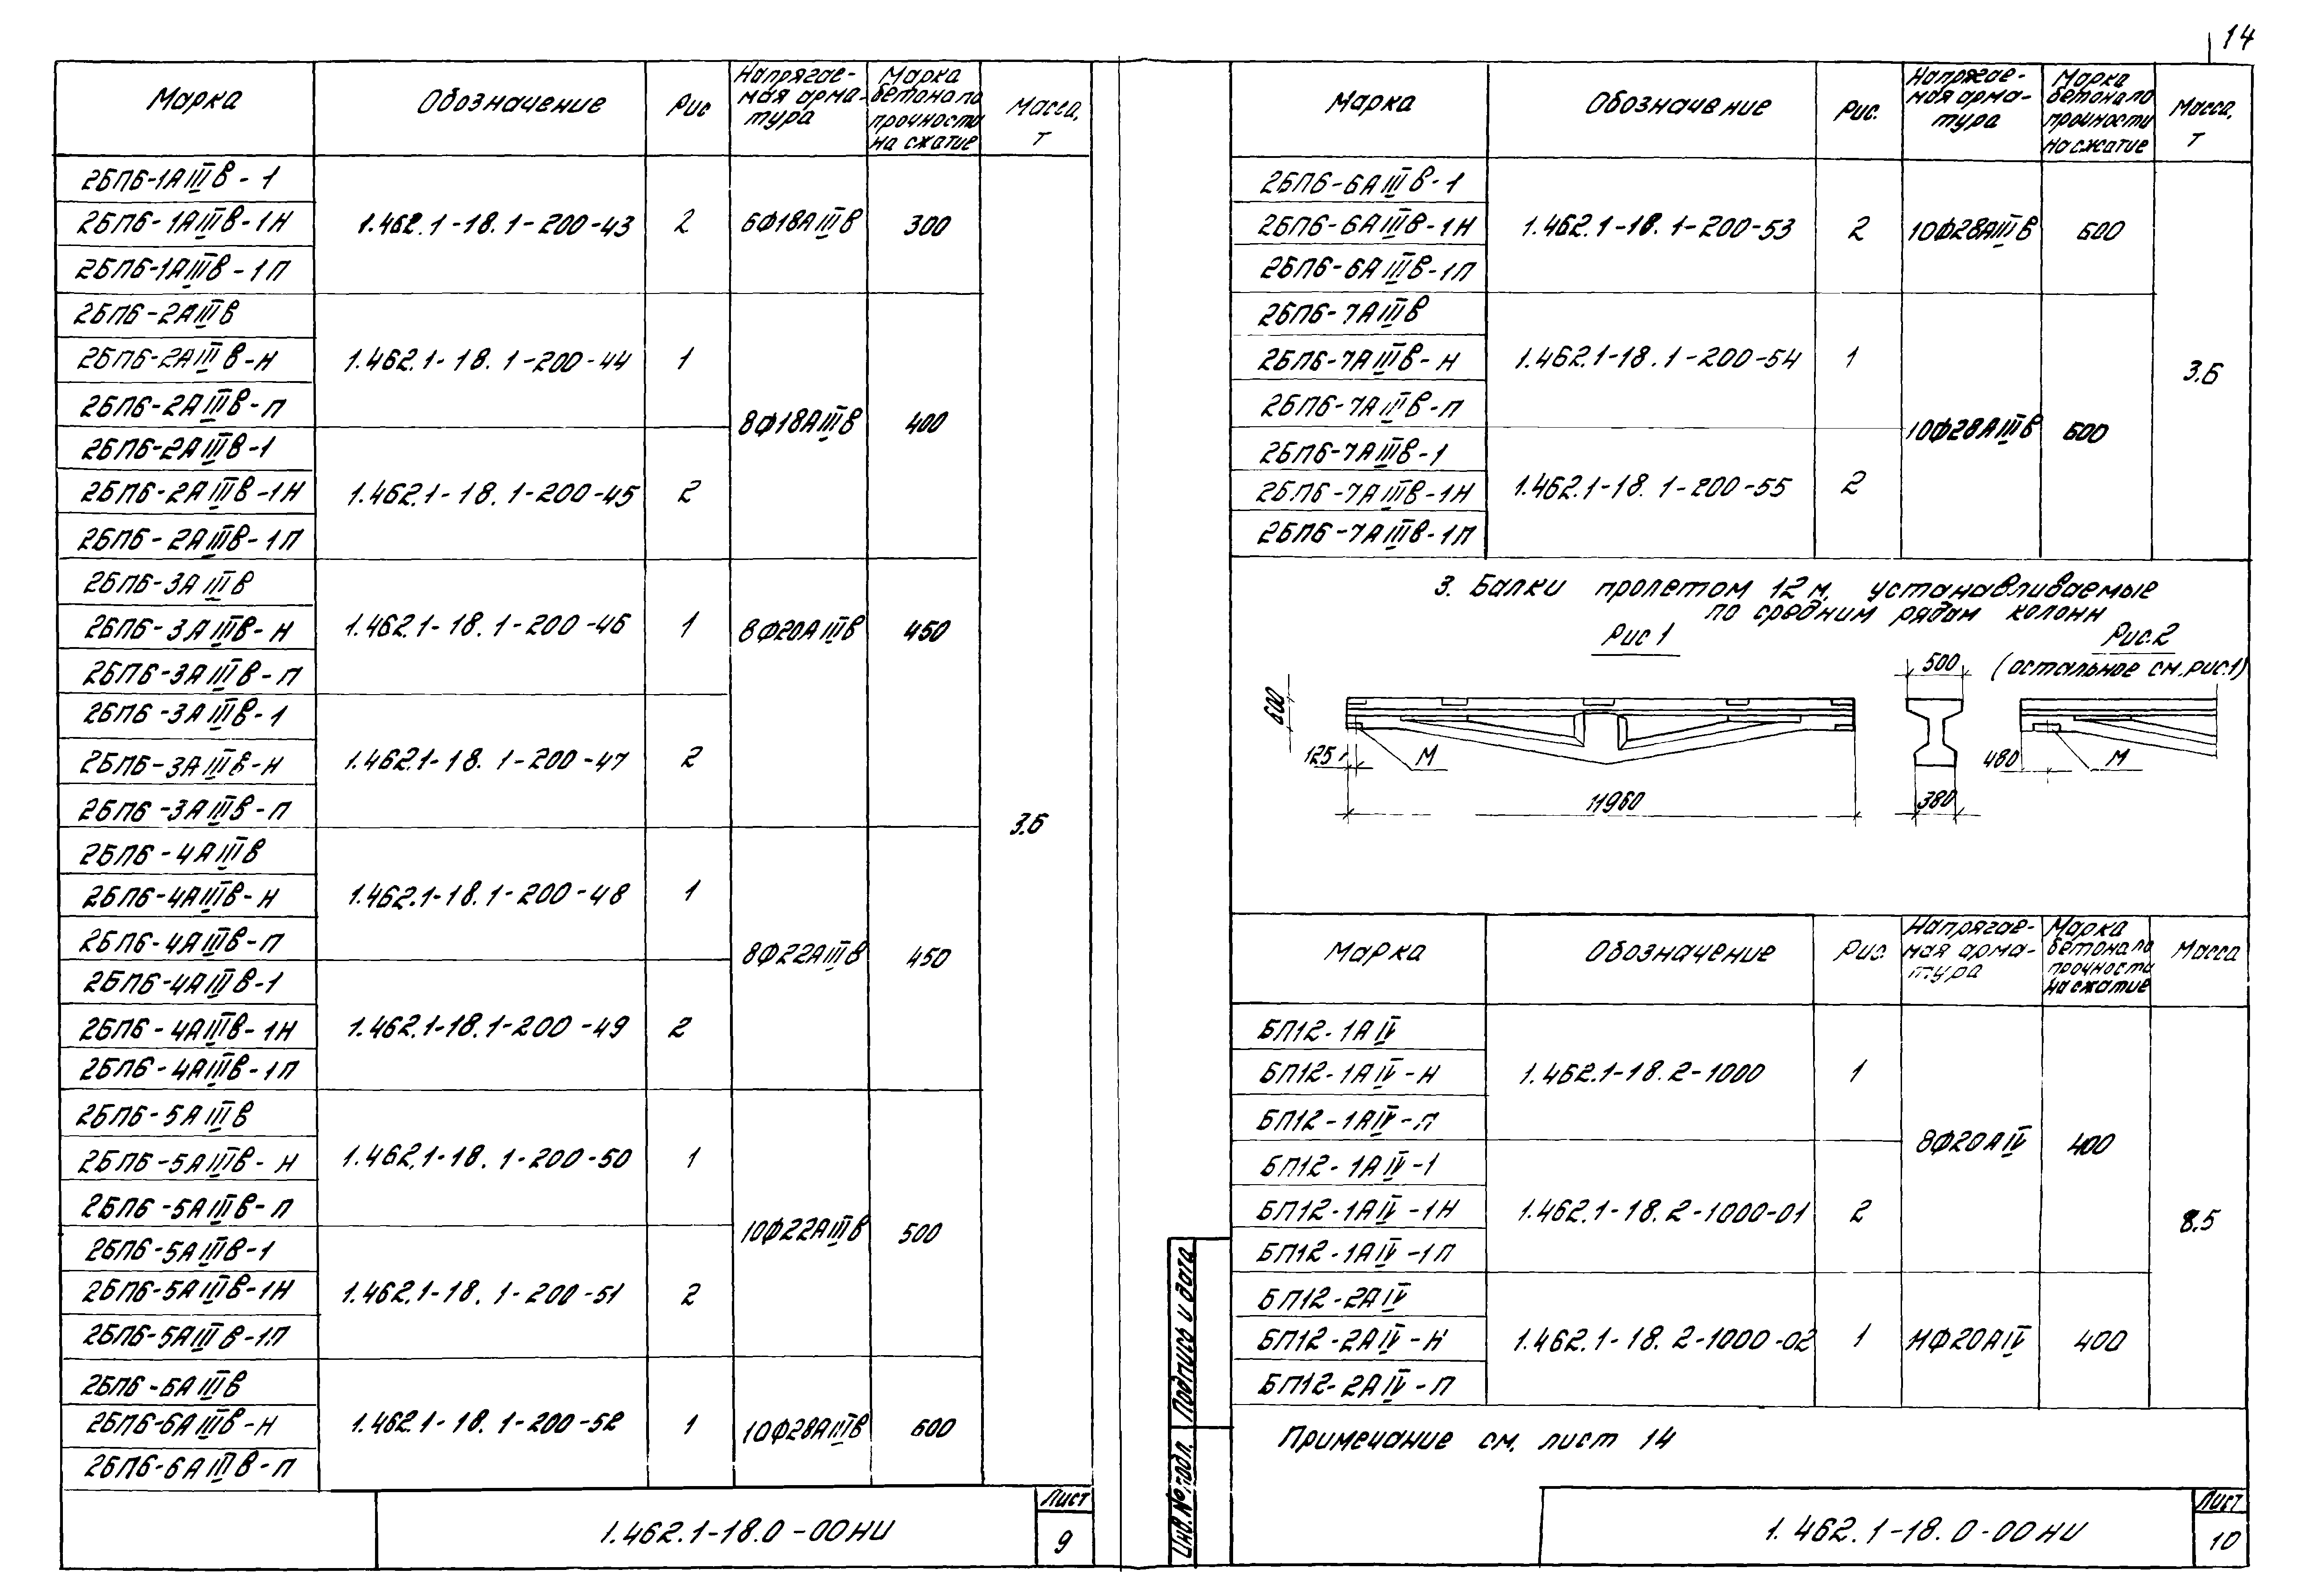 14
Марка Обозначение Рис Напрягае-мая арма-тура Марка бетона по прочности на сжатие Масса, т
2БП6-1АIIIв-1
2БП6-1АIIIв-1Н 1.462.1-18.1-200-43 2 6Ф18АIIIв 300
2БП6-1АIIIв-1П
2БП6-2АIIIв
2БП6-2АIIIв-Н 1.462.1-18.1-200-44 1
2БП6-2АIIIв-П
8Ф18АIIIв 400
2БП6-2АIIIв-1
2БП6-2АIIIв-1Н 1.462.1-18.1-200-45 2
2БП6-2АIIIв-1П
2БП6-3АIIIв
2БП6-3АIIIв-Н 1.462.1-18.1-200-46 1 8Ф20АIIIв 450
2БП6-3АIIIв-П
2БП6-3АIIIв-1
2БП6-3АIIIв-Н 1.462.1-18.1-200-47 2
2БП6-3АIIIв-П
3.6
2БП6-4АIIIв
2БП6-4АIIIв-Н 1.462.1-18.1-200-48 1
2БП6-4АIIIв-П
8Ф22АIIIв 450
2БП6-4АIIIв-1
2БП6-4АIIIв-1Н 1.462.1-18.1-200-49 2
2БП6-4АIIIв-1П
2БП6-5АIIIв
2БП6-5АIIIв-Н 1.462.1-18.1-200-50 1
2БП6-5АIIIв-П
10Ф22АIIIв 500
2БП6-5АIIIв-1
2БП6-5АIIIв-1Н 1.462.1-18.1-200-51 2
2БП6-5АIIIв-1П
2БП6-6АIIIв
2БП6-6АIIIв-Н 1.462.1-18.1-200-52 1 10Ф28АIIIв 600
2БП6-6АIIIв-П
1.462.1-18.0-00НИ
Лист
9
Марка Обозначение Рис. Напрягае-мая арма-тура Марка бетона по прочности на сжатие Масса, т
2БП6-6АIIIв-1
2БП6-6АIIIв-1Н 1.462.1-18.1-200-53 2 10Ф28АIIIв 600
2БП6-6АIIIв-1П
2БП6-7АIIIв
2БП6-7АIIIв-Н 1.462.1-18.1-200-54 1 3.6
2БП6-7АIIIв-П
10Ф28АIIIв 600
2БП6-7АIIIв-1
2БП6-7АIIIв-1Н 1.462.1-18.1-200-55 2
2БП6-7АIIIв-1П
3. Балки пролетом 12м, устанавливаемые
по средним рядам колонн
Рис 1 Рис.2
(остальное см.рис.1)
500
600
125 М 480 М
11960 380
Марка Обозначение Рис Напрягае-мая арма-тура Марка бетона по прочности на сжатие Масса
БП12-1АIV
БП12-1АIV-Н 1.462.1-18.2-1000 1
БП12-1АIV-П
8Ф20АIV 400
БП12-1АIV-1
БП12-1АIV-1Н 1.462.1-18.2-1000-01 2
8.5
БП12-1АIV-1П
БП12-2АIV
БП12-2АIV-Н 1.462.1-18.2-1000-02 1 НФ20АIV 400
БП12-2АIV-П
Примечание см. лист 14
Инв.№ подл. Подпись и дата
1.462.1-18.0-00НИ
Лист
10